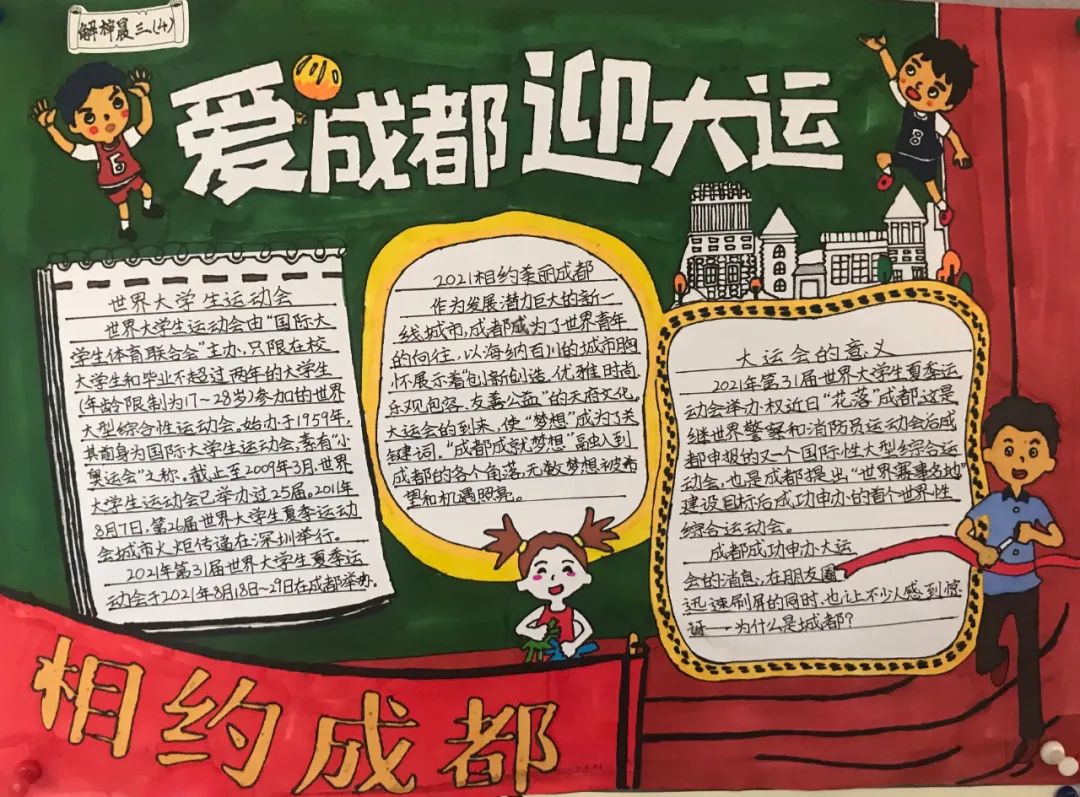 解梓晨三.(4)
爱成都迎大运
6
8
世界大学生运动会
世界大学生运动会由“国际大
学生体育联合会”主办,只限在校
大学生和毕业不超过两年的大学生
(年龄限制为17~28岁)参加的世界
大型综合性运动会。始办于1959年,
其前身为国际大学生运动会,素有“小
奥运会”之称。截止至2009年3月,世界
大学生运动会已举办过25届。2011年
8月7日,第26届世界大学生夏季运动
会城市火炬传递在深圳举行。
2021年第31届世界大学生夏季运
动会于2021年8月18日~29日在成都举办.
2021相约美丽成都
作为发展潜力巨大的新一
线城市,成都成为了世界青年
的向往,以海纳百川的城市胸
怀展示着“创新创造、优雅时尚、
乐观包容、友善公益”的天府文化。
大运会的到来,使“梦想”成为了关
键词。“成都成就梦想”融入到
成都的各个角落,无数梦想被希
望和机遇照亮。
大运会的意义
2021年第31届世界大学生夏季运
动会举办权近日“花落”成都,这是
继世界警察和消防员运动会后成
都申报的又一个国际性大型综合运
动会,也是成都提出“世界赛事名地”
建设目标后成功申办的首个世界性
综合运动会。
成都成功申办大运
会的消息,在朋友圈
迅速刷屏的同时,也让不少人感到惊
讶——为什么是成都?
相约成都